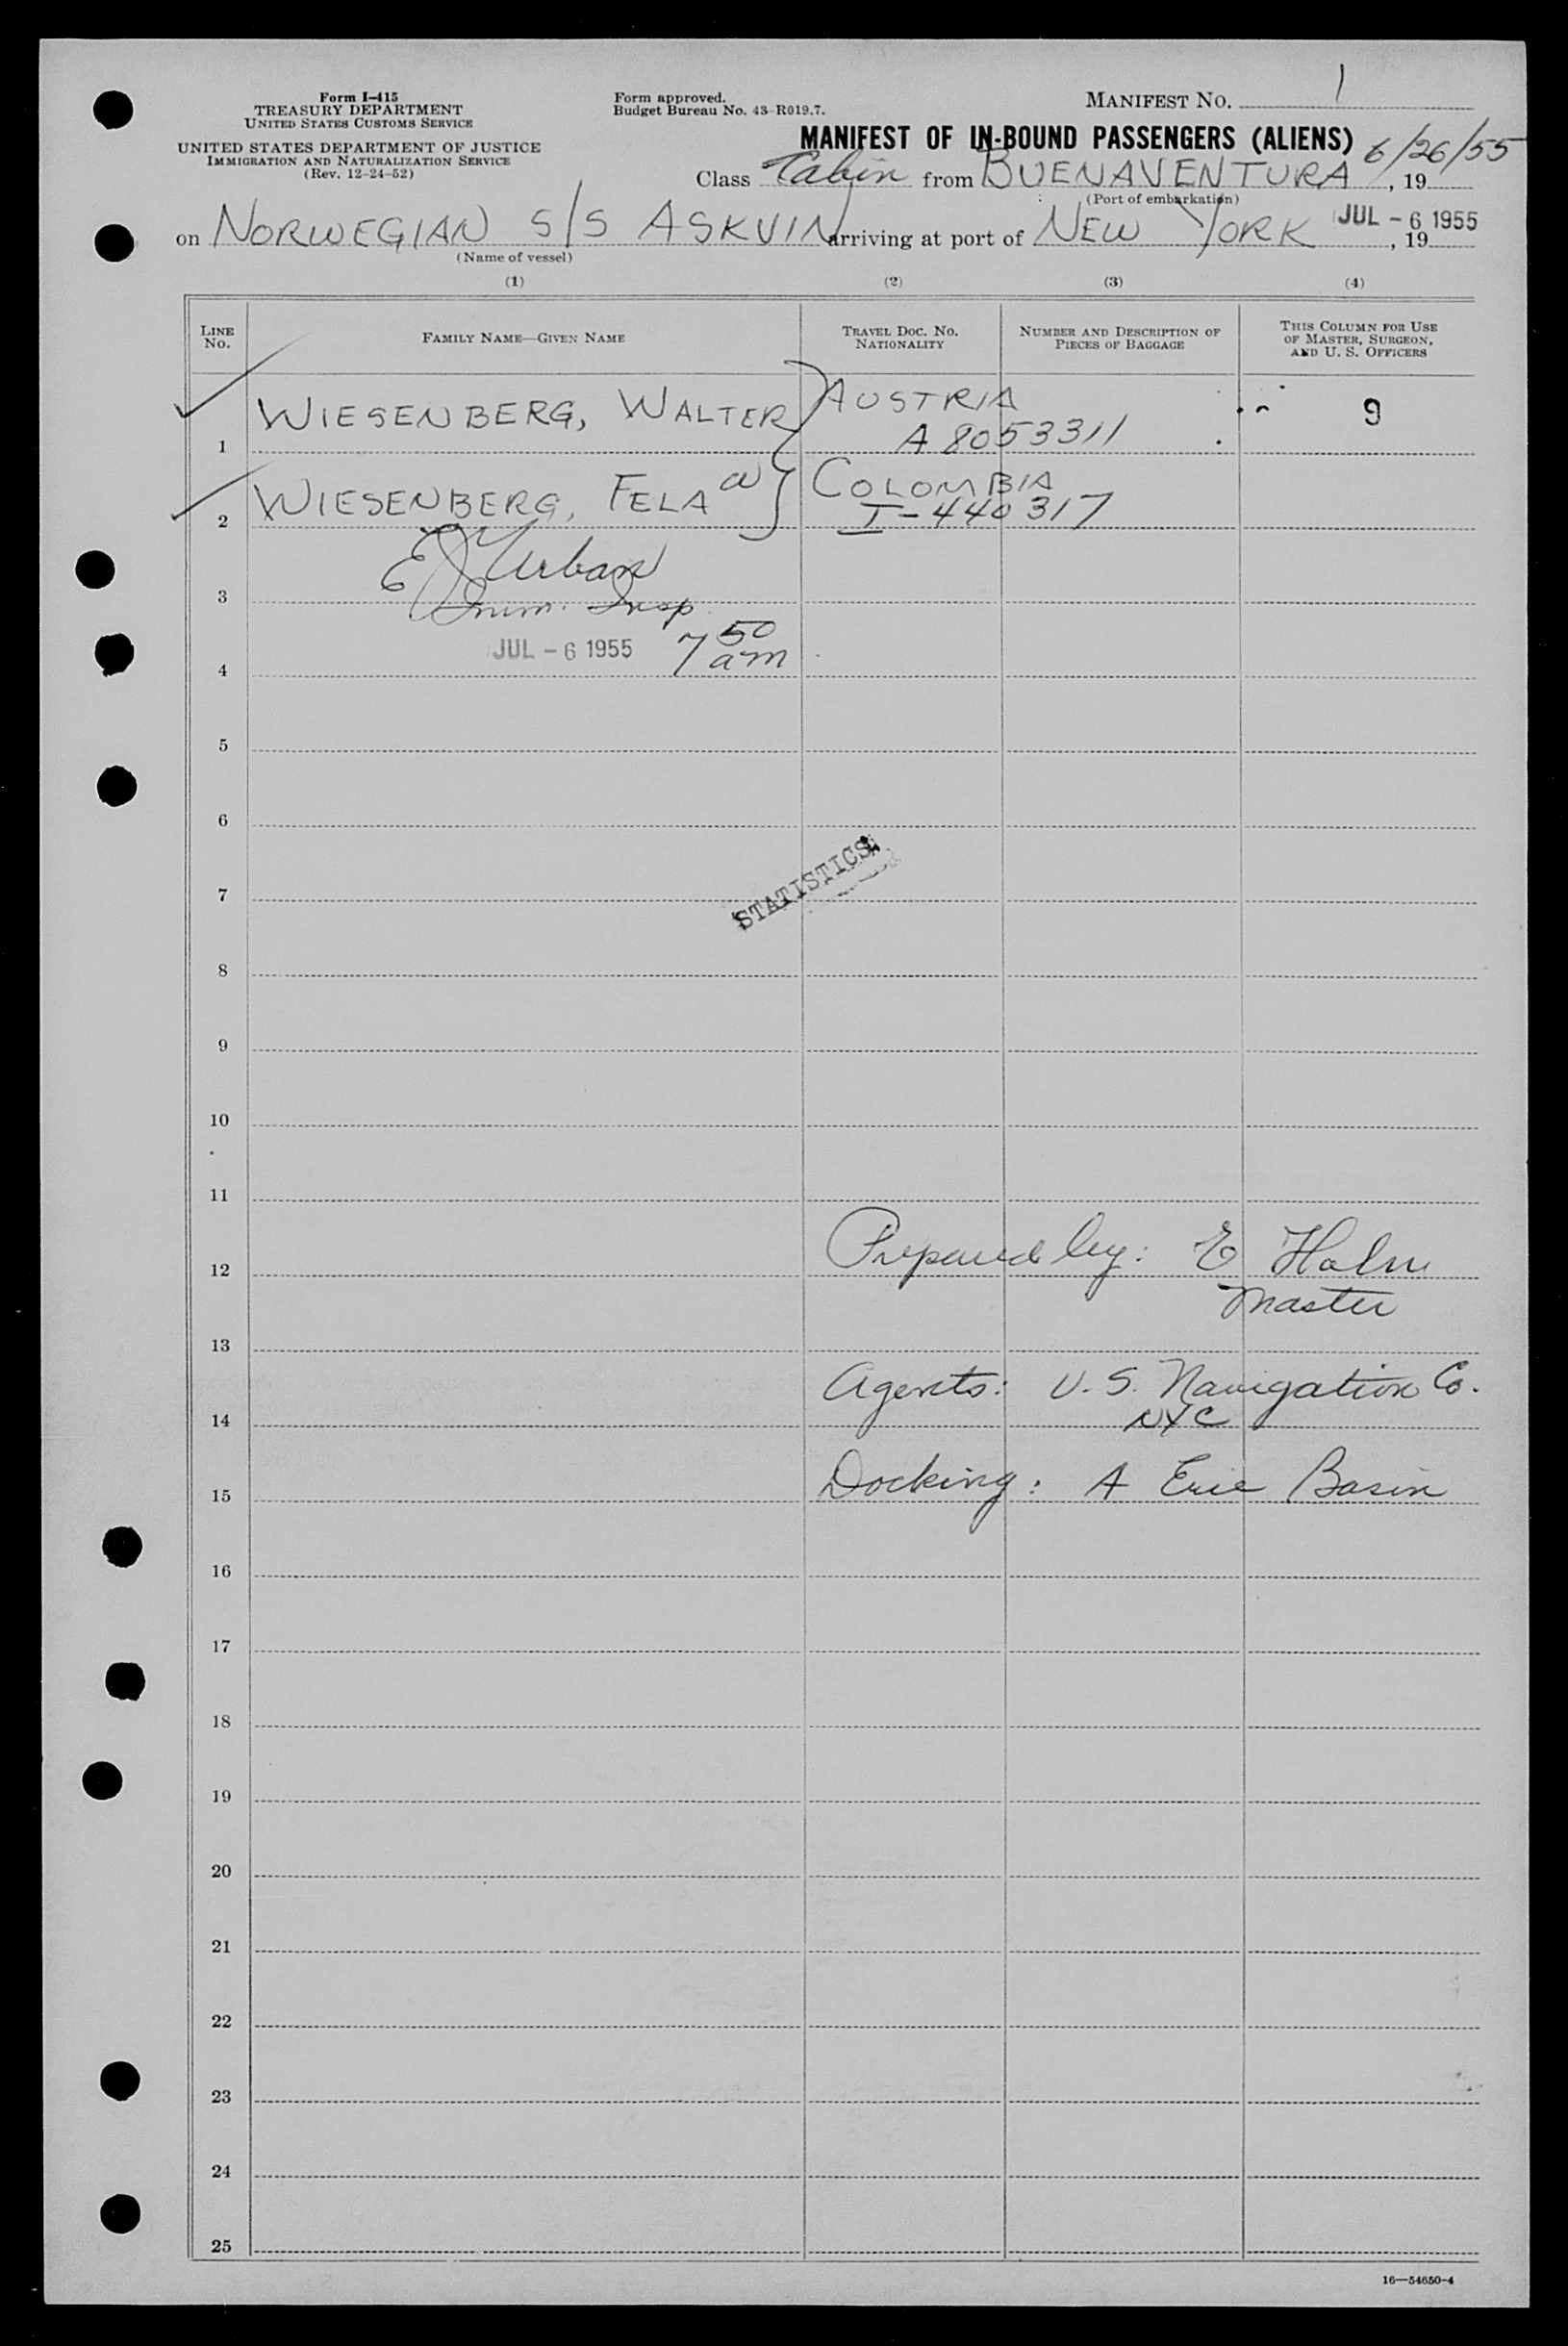 Form I-415
TREASURY DEPARTMENT
UNITED STATES CUSTOMS SERVICE
UNITED STATES DEPARTMENT OF JUSTICE
IMMIGRATION AND NATURALIZATION SERVICE
(Rev. 12-24-52)
Form approved.
Budget Bureau No. 43-R019.7.
MANIFEST NO. 1
MANIFEST OF IN-BOUND PASSENGERS (ALIENS)
Class Cabin from BUENAVENTURA 6/26/55, 19
(Port of embarkation)
on NORWEGIAN S/S ASKVIN arriving at port of NEW YORK JUL - 6 1955, 19
(Name of vessel)
(1) (2) (3) (4)
LINE NO. FAMILY NAME—GIVEN NAME TRAVEL DOC. NO. NATIONALITY NUMBER AND DESCRIPTION OF PIECES OF BAGGAGE THIS COLUMN FOR USE OF MASTER, SURGEON, AND U. S. OFFICERS
1 WIESENBERG, WALTER AUSTRIA A 8053311 9
2 WIESENBERG, FELA COLOMBIA I-440317
E J Urban
3 Imm. Insp.
4 JUL - 6 1955 7 50 am
5
6
7 STATISTICS
8
9
10
11
12 Prepared by: E Holm
Master
13
14 Agents: U.S. Navigation Co.
NYC
15 Docking: A Erie Basin
16
17
18
19
20
21
22
23
24
25
16—54650-4